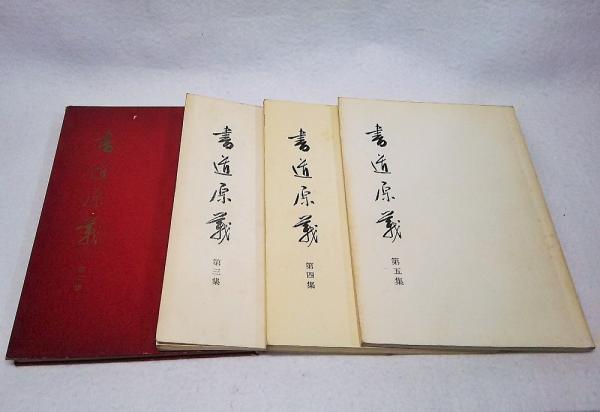 書道原義
書道原義
第三集
書道原義
第四集
書道原義
第五集